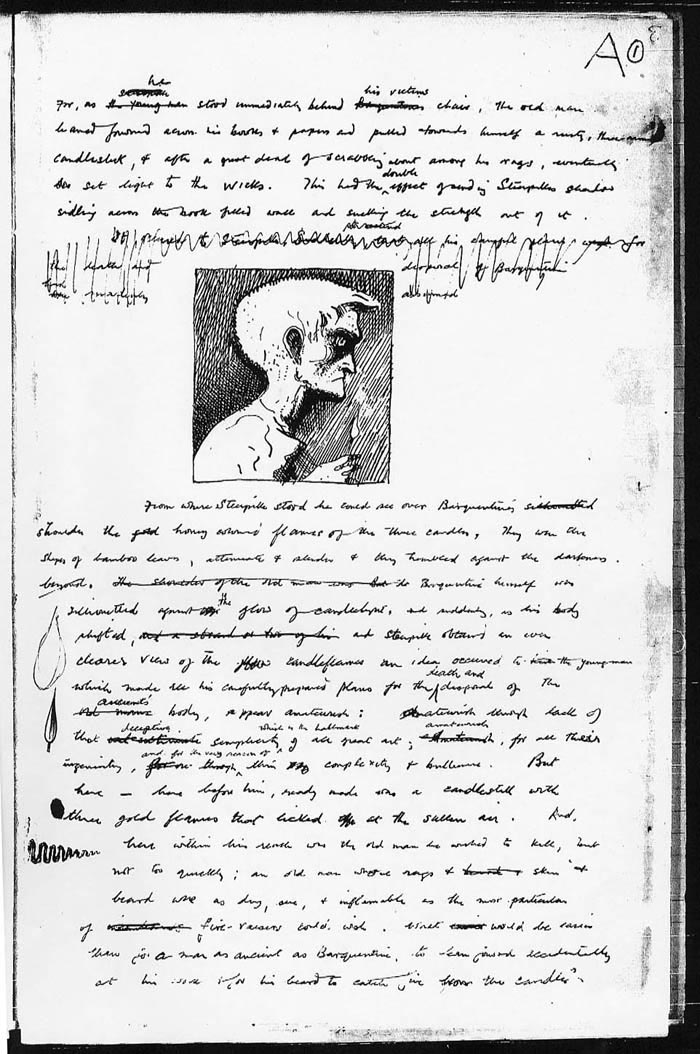 A ①
he
For, as the young man stood immediately behind Barquentine's his victims chair, the old man
leaned forward across his books & papers and pulled towards himself a rusty, three
candlestick, & after a great deal of scrabbling about among his rags, eventually
set light to the wicks. This had the double effect of sending Steerpike's shadow
sidling across the book filled wall and sucking the strength out of it.
all his for
the and disposal of Barquentine
From where Steerpike stood he could see over Barquentine's silhouetted
shoulder the gold honey coloured flames of the three candles. They were the
shape of bamboo leaves, attenuate & slender & they trembled against the darkness.
beyond. The shoulder of the old man was Barquentine himself was
silhouetted against the glow of candlelight, and suddenly, as his body
shifted, and a strand or two of his and Steerpike obtained an even
clearer view of the candleflames an idea occurred to the young man
which made all his carefully prepared plans for the death and disposal of the
ancient's body, appear amateurish: amateurish through lack of
that deceptive simplicity which is the hallmark of all great art; amateurish, for all their
ingenuity, and for the very reason of their complexity & brilliance. But
here — here before him, ready made was a candlestick with
three gold flames that licked at the sullen air. And,
here within his reach was the old man he wished to kill, but
not too quickly; an old man whose rags & skin &
beard were as dry, sere, & inflamable as the most particular
of fire-raisers could wish. What would be easier
than for a man as ancient as Barquentine, to lean forward accidentally
at his work & for his beard to catch fire from the candles.